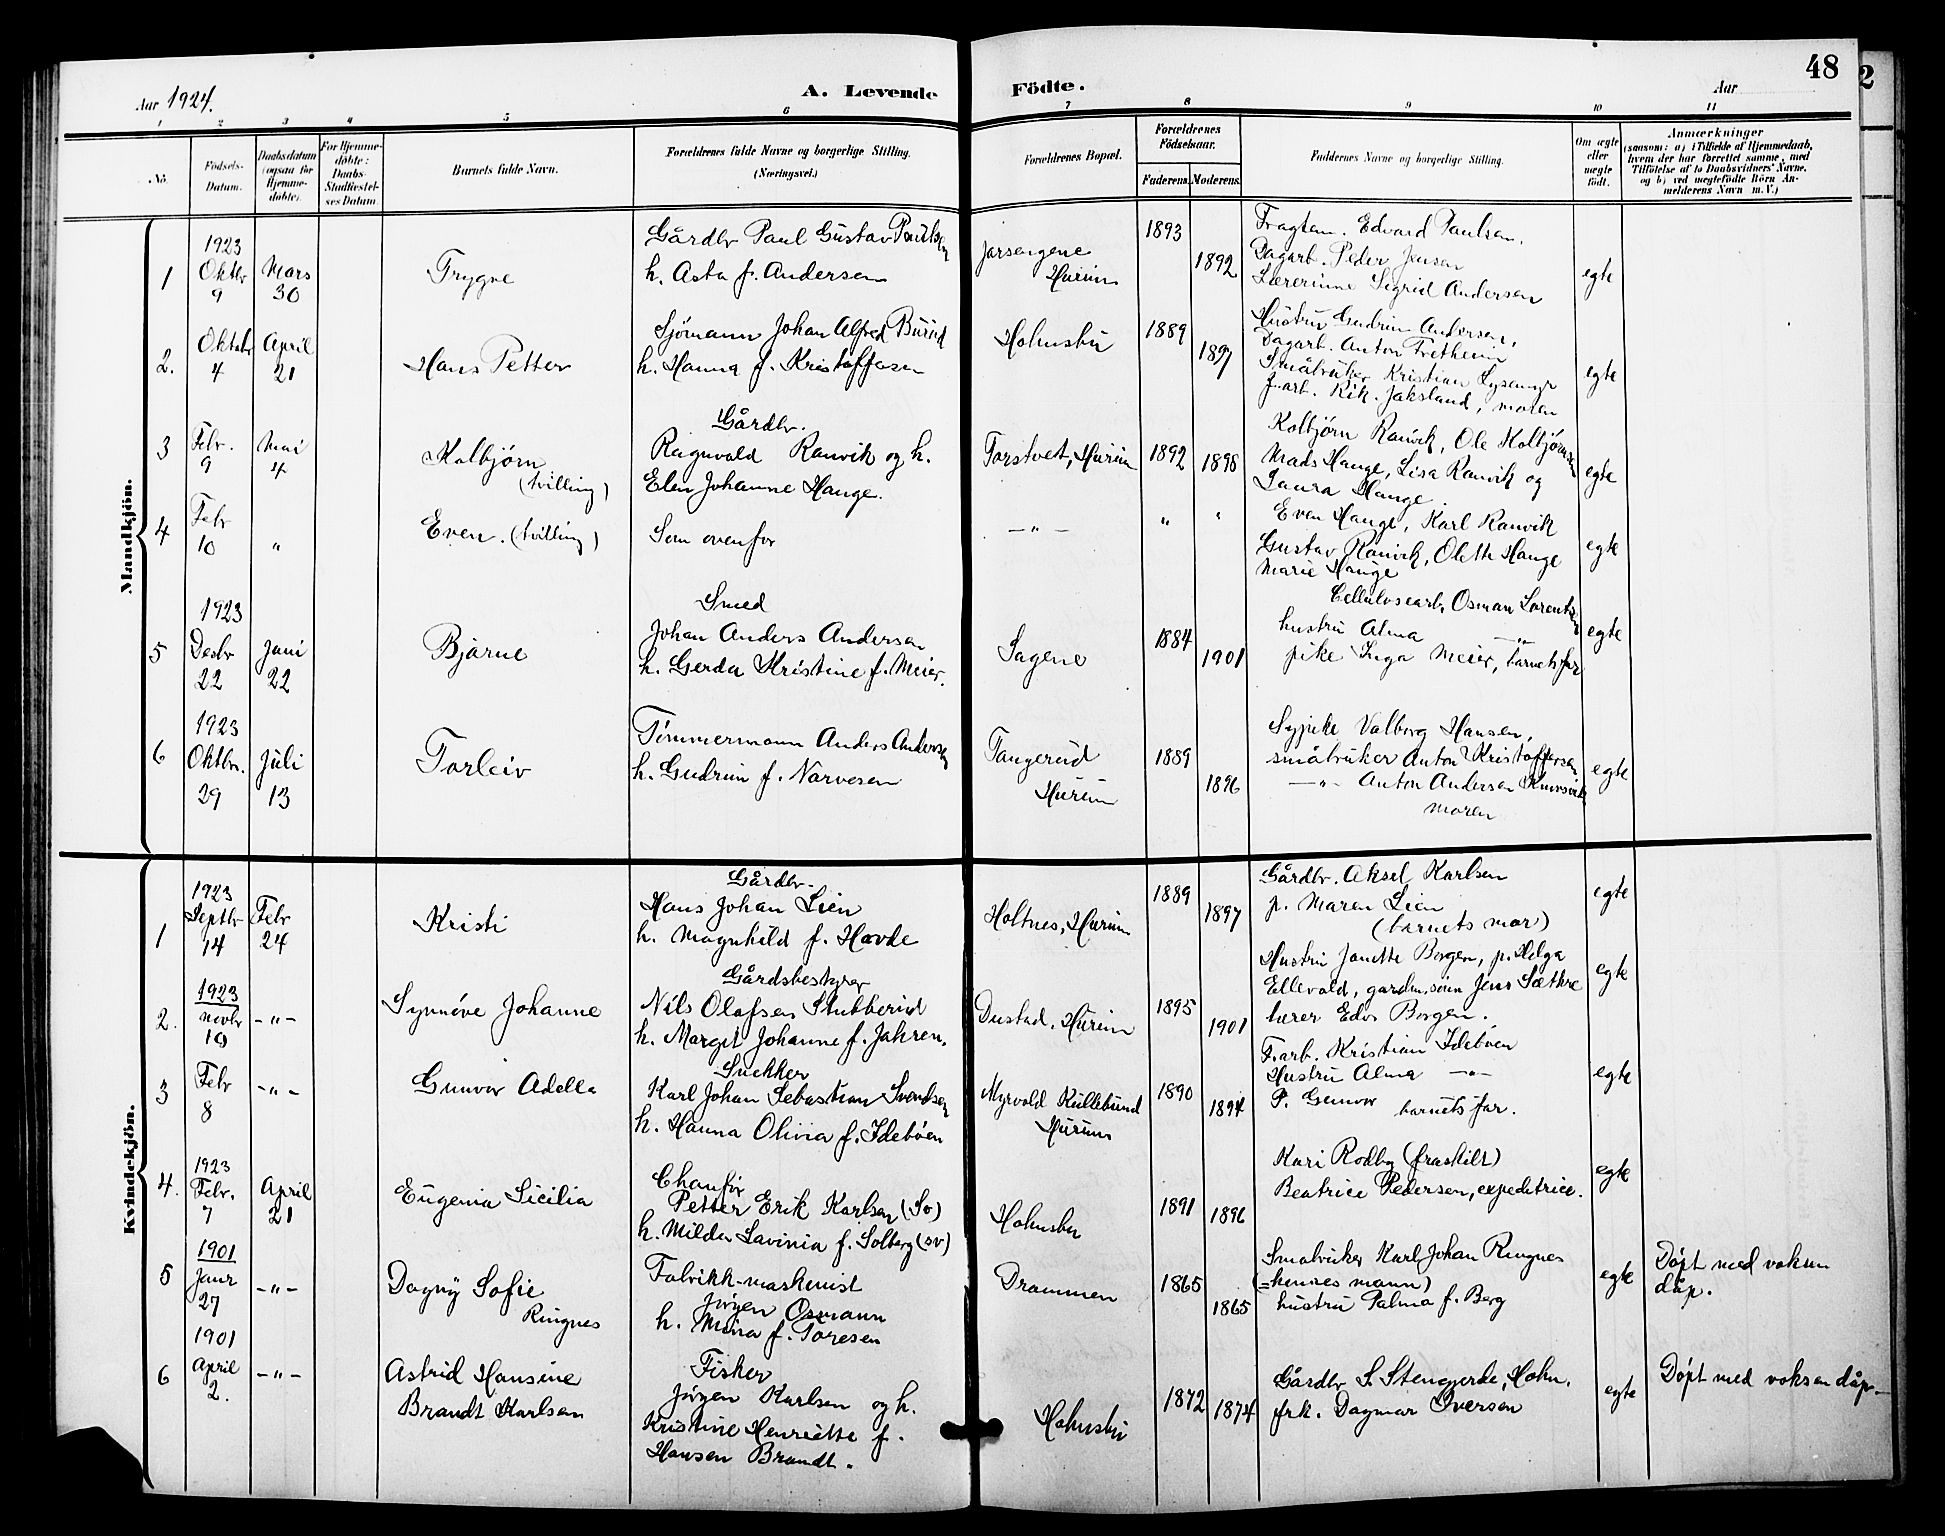 48
Aar 1924.
A. Levende Födte.
Aar
1 2 3 4 5 6 7 8 9 10 11
No.
Födsels-Datum.
Daabsdatum (ogsaa for Hjemme-döbte).
For Hjemme-döbte: Daabs-Stadfæstelses Datum.
Barnets fulde Navn.
Forældrenes fulde Navne og borgerlige Stilling. (Næringsvei.)
Forældrenes Bopæl.
Forældrenes Födselsaar.
Faderens. Moderens.
Faddernes Navne og borgerlige Stilling.
Om ægte eller uægte födt.
Anmærkninger
(saasom: a) i Tilfælde af Hjemmedaab, hvem der har forrettet samme, med Tilföielse af to Daabsvidners Navne, og b) ved uægtefödte Börn Anmelderens Navn m. V.)
Mandkjön.
1
1923
Oktbr
9
Mars
30
Trygve
Gårdbr Paul Gustav Paulsen
h. Asta f. Andersen
Jarsengene
Hurum
1893
1892
Fragtem. Edvard Paulsen,
Dagarb. Peder Jensen
Lærerinne Sigrid Andersen
egte
2.
Oktobr
4
April
21
Hans Petter
Sjømann Johan Alfred Burud
h. Hanna f. Kristoffersen
Holmsbu
1889
1897
Hustru Gudrun Andersen,
Dagarb. Anton Fretheim
Småbruker Kristian Lysemyr
f.arb. Rik. Jaksland, moren
egte
3
Febr.
9
Mai
4
Kolbjørn
(tvilling)
Gårdbr.
Ragnvald Ranvik og h.
Elen Johanne Hauge.
Torstvet, Hurum
1892
1898
Kolbjørn Ranvik, Ole Kolbjørnsen
Mads Hauge, Lisa Ranvik og
Laura Hauge.
egte
4
Febr
10
"
Even. (tvilling)
Som ovenfor
— " —
"
"
Even Hauge, Karl Ranvik
Gustav Ranvik, Olette Hauge
Marie Hauge
egte
5
1923
Desbr
22
Juni
22
Bjarne
Smed
Johan Anders Andersen
h. Gerda Kristine f. Meier.
Sagene
1884
1901
Cellulosearb. Osman Lorentsen
hustru Alma — " —
pike Inga Meier, barnets far
egte
6
1923
Oktbr.
29
Juli
13
Torleiv
Tømmermann Anders Andersen
h. Gudrun f. Narvesen
Tangerud
Hurum
1889
1896
Sypike Valborg Hansen,
småbruker Anton Kristoffersen
— " — Anton Andersen Knivsvik
moren
egte
Kvindekjön.
1
1923
Septbr
14
Febr
24
Kristi
Gårdbr.
Hans Johan Lien
h. Magnhild f. Hovde
Holtnes, Hurum
1889
1897
Gårdbr. Aksel Karlsen
p. Maren Lien
(barnets mor)
egte
2.
1923
Novbr
10
— " —
Synnøve Johanne
Gårdsbestyrer
Nils Olafsen Stubberud
h. Margit Johanne f. Jahren.
Dustad, Hurum
1895
1901
Hustru Janette Borgen, p. Helga
Ellevold, gardm.søn Jens Sæthre
lærer Edv. Borgen.
egte
3
Febr
8
— " —
Gunvor Adella
Snekker
Karl Johan Sebastian Svendsen
h. Hanna Olivia f. Idebøen
Myrvold Kullebund
Hurum
1890
1894
F.arb. Kristian Idebøen
Hustru Alma — " —
P. Gunvor
barnets far.
egte
4.
1923
Febr.
7
April
21
Eugenia Sicilia
Chaufør
Petter Erik Karlsen (Sv)
h. Milda Lavinia f. Solberg (sv)
Holmsbu
1891
1896
Kari Rodby (fraskilt)
Beatrice Pedersen, expeditrice.
egte
5
1901
Janr
27
— " —
Dagny Sofie
Ringnes
Fabrikk-maskenist
Jørgen Osmann
h. Mina f. Toresen
Drammen
1865
1865
Småbruker Karl Johan Ringnes
(=hennes mann)
hustru Palma f. Berg
egte
Døpt med voksen
dåp.
6
1901
April
2.
— " —
Astrid Hansine
Brandt Karlsen
Fisker
Jørgen Karlsen og h.
Kristine Henriette f.
Hansen Brandt.
Holmsbu
1872
1874
Gårdbr S. Stengjerde, Holm.
frk. Dagmar Iversen
egte
Døpt med voksen dåp.